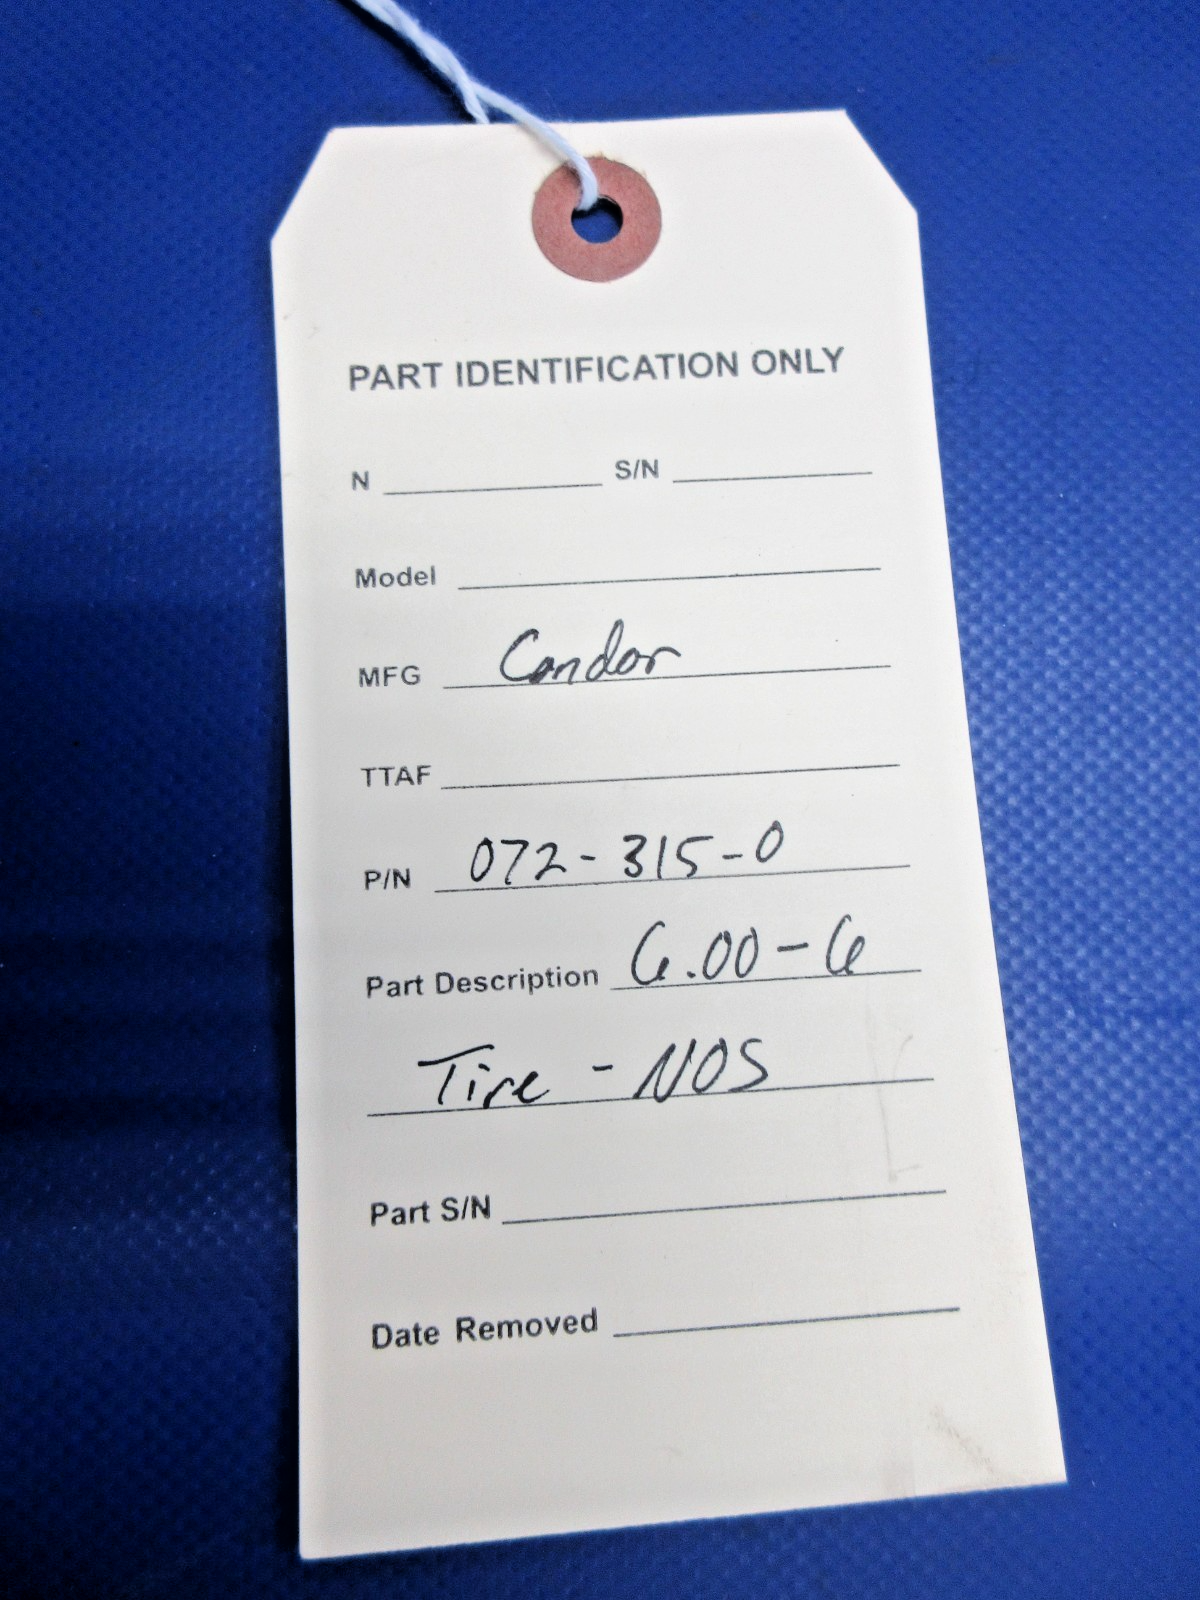 PART IDENTIFICATION ONLY
N S/N
Model
MFG Condor
TTAF
P/N 072-315-0
Part Description 6.00-6
Tire - NOS
Part S/N
Date Removed